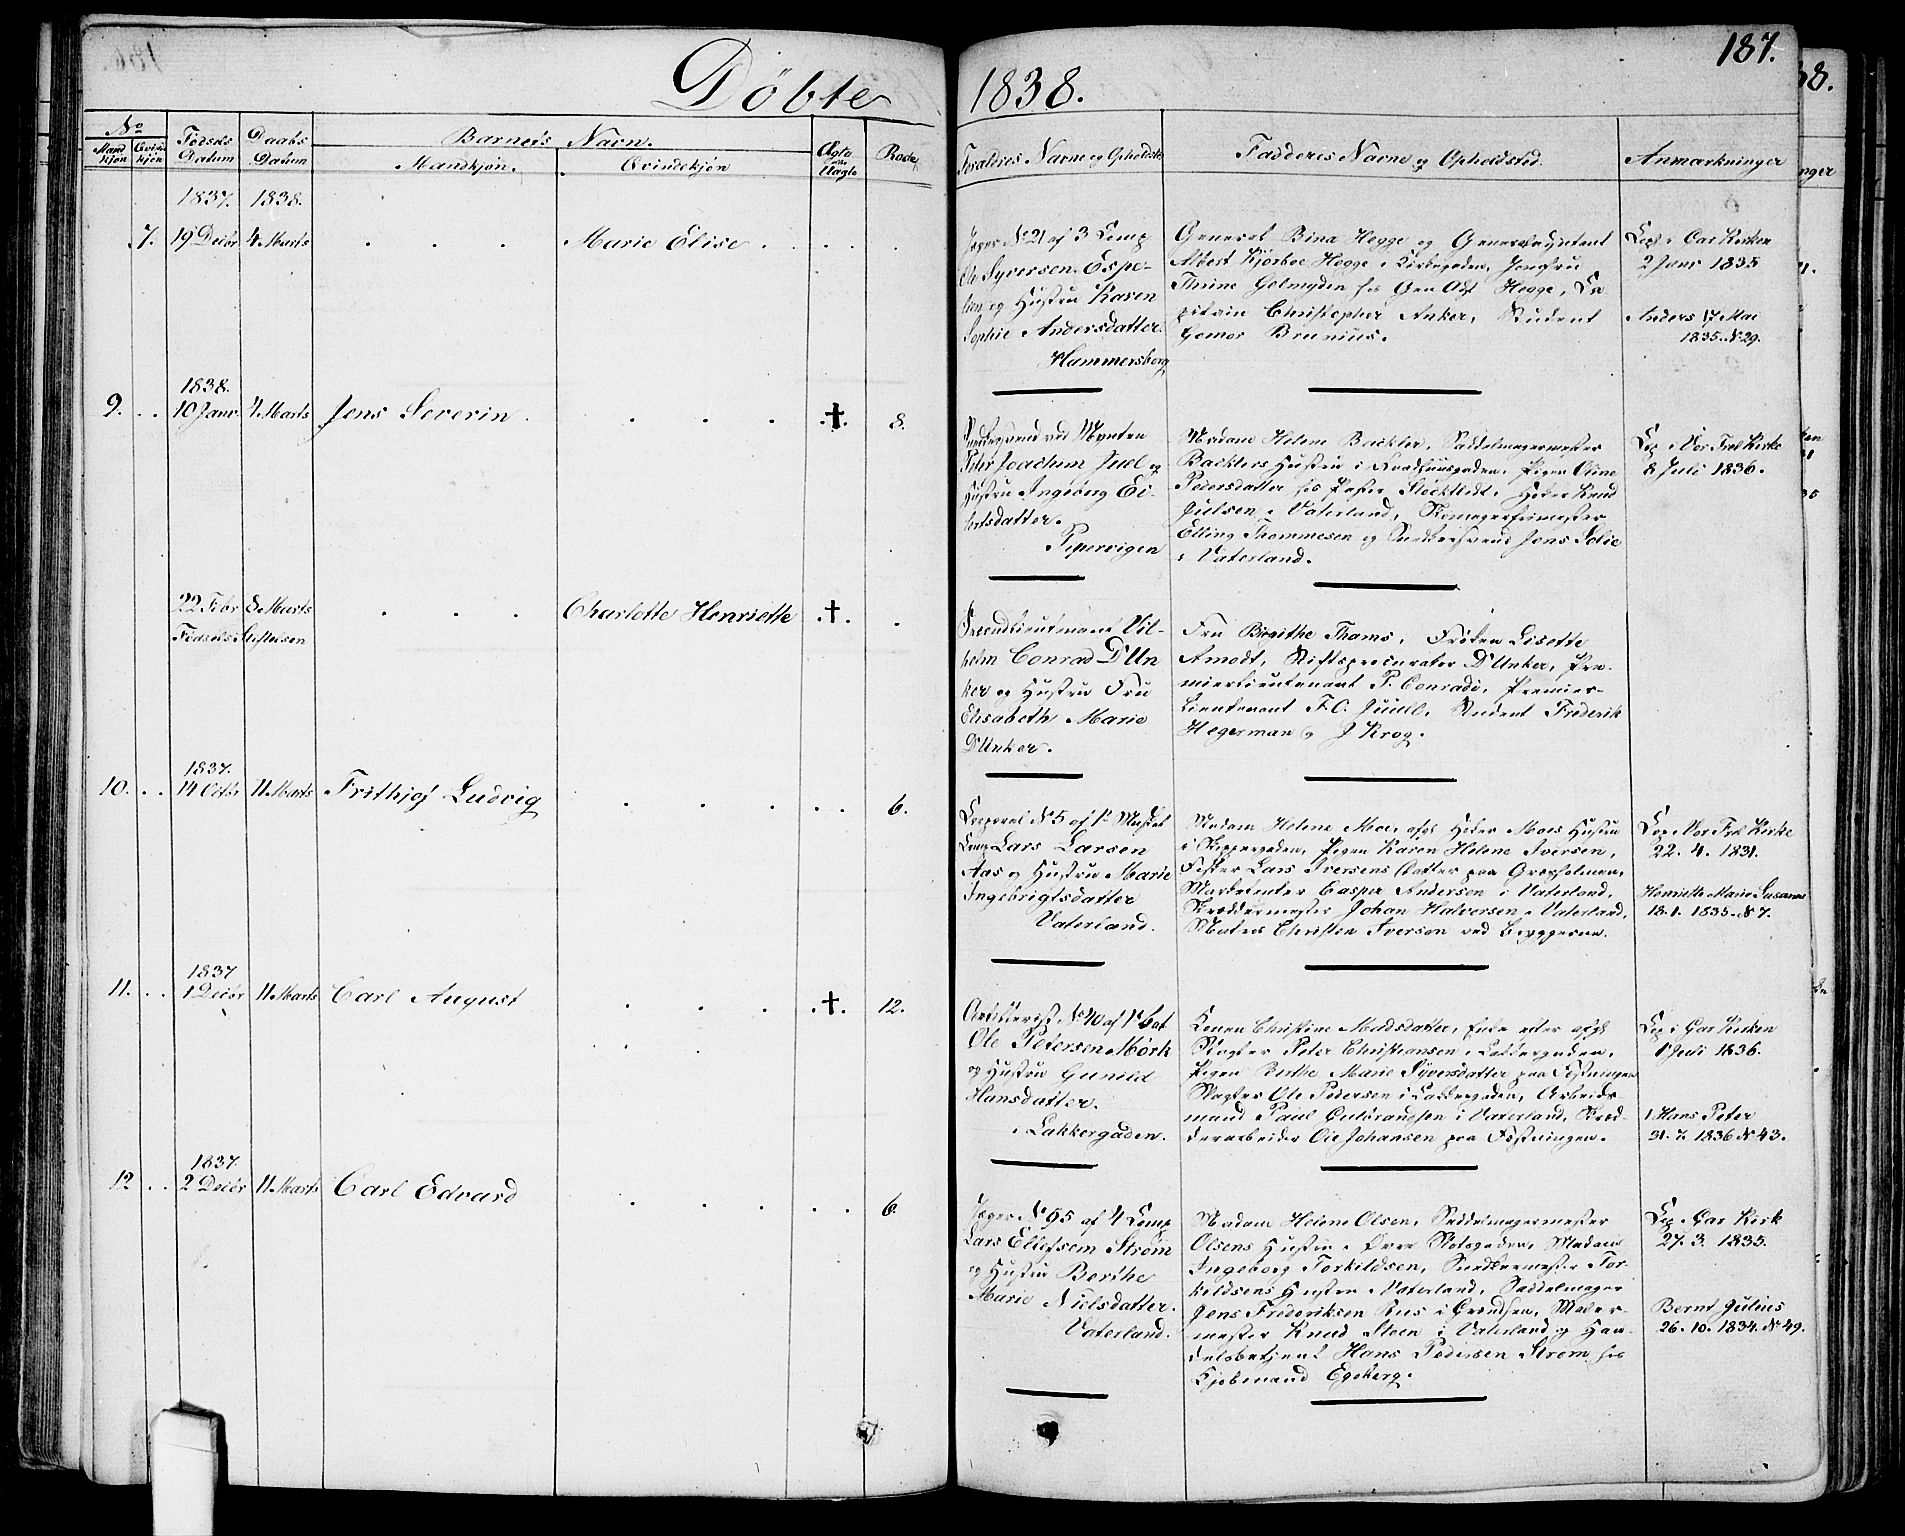 Döbte 1838.
187.
No
Mandkjön
Qvindekjön
Födsels Datum
Daabs Datum
Barnets Navn.
Mandkjön.
Qvindekjön
Ægte
Uægte
Rode
Foraldres Navne og Opholdsted
Faddernes Navne og Opholdsted.
Anmærkninger
1837. 1838.
7. 19 Decbr 4 Marts . . . Marie Elise . . . .
Jæger No 21 af 3 Comp
Ole Syversen Espe-
og Hustru Karen
Sophie Andersdatter.
Hammersborg
General Bina Hegge og Generalagutant
Albert Kjørboe Hegge i Kirkegaden, Jomfru
Thrine Golmyden hos Gen Adj Hegge, Ca
pitain Christopher Anker, Student
Gomos Brunius.
Cop. i Gar Kirken
2 Janr 1835
Anders 17 Mai
1835. No 29.
1838.
9. . . 10 Janr 4 Marts Jens Severin . . . . .†. 8.
ved Mynten
Peter Joachum Juel og
Hustru Ingeborg Ei-
lertsdatter.
Pipervigen
Madam Helene Backler, Saddelmagermester
Backlers Hustru i, Pigen Oline
Pedersdatter hos Pastor Stockfledt, Knud
Juelsen i Vaterland,
Elling Thommesen og Jens Solie
i Vaterland.
Cop. i Vor Frel Kirke
8 Juli 1836.
22 Febr 8 Marts . . . Charlotte Henriette .†. .
Födsels Stiftelsen
Secondlieutenant Vil-
helm Conrad D'Un
ker og Hustru Fru
Elisabeth Marie
D'Unker.
Fru Birgithe Thams, Fröken Lisette
Amodt, Stiftsprocurator D'Unker, Pre-
mierlieutenant P. Conradi, Premier-
Lieutenant F. C. Juuel, Student Frederik
Hegerman og J Krog.
1837.
10. . . 14 Octbr 11 Marts Frithjof Ludvig . . . . . 6.
Corporal No 5 af 1e Musket
Comp Lars Larsen
Aas og Hustru Marie
Ingebrigtsdatter
Vaterland.
Madam Helene Moe, afgl Moes Hustru
i Skippergaden, Pigen Karen Helene Iversen,
Fisker Lars Iversens Datter paa Græsholmen,
Marketenter Casper Andersen i Vaterland,
Skræddermester Johan Halversen i Vaterland,
Matros Christen Iversen ved Bryggerne.
Cop. i Vor Frel Kirke
22. 4. 1831.
Henriette Marie Susanne
18. 1. 1835. No 7.
1837
11. . . 1 Decbr 11 Marts Carl August . . . .†. 12.
Artillerist No 40 af 1e bat
Ole Petersen Mörk
og Hustru Gunild
Hansdatter.
i Lakkergaden.
Konen Christine Madsdatter, Enke efter afgl
Slagter Peter Christiansen i Lakkergaden,
Pigen Berthe Marie Syversdatter paa Fæstningen
Slagter Ole Pedersen i Lakkergaden, Arbeids
mand Paul Gulbrandsen i Vaterland, Skræd-
derarbeider Ole Johansen paa Fæstningen.
Cop. i Gar Kirken
1 Juli 1836.
1 Hans Peter
31. 7. 1836 No 43.
1837.
12 . . 2 Decbr 11 Marts Carl Edvard . . . . . 6.
Jæger No 95 af 4 Comp
Lars Ellefsen Ström
og Hustru Berthe
Marie Nielsdatter.
Vaterland.
Madam Helene Olsen, Saddelmagermester
Olsens Hustru i Övre Slotsgaden, Madam
Ingeborg Torkildsen, Snedkermester Tor-
kildsens Hustru i Vaterland, Saddelmager
Jens Frederiksen Rus i Grændsen, Maler-
mester Knud Steen i Vaterland og Han-
delsbetjent Hans Pedersen Ström hos
Kjøbmand Egeberg.
Cop. i Gar Kirk
27. 3. 1835.
Bernt Julius
26. 10. 1834. No 49.